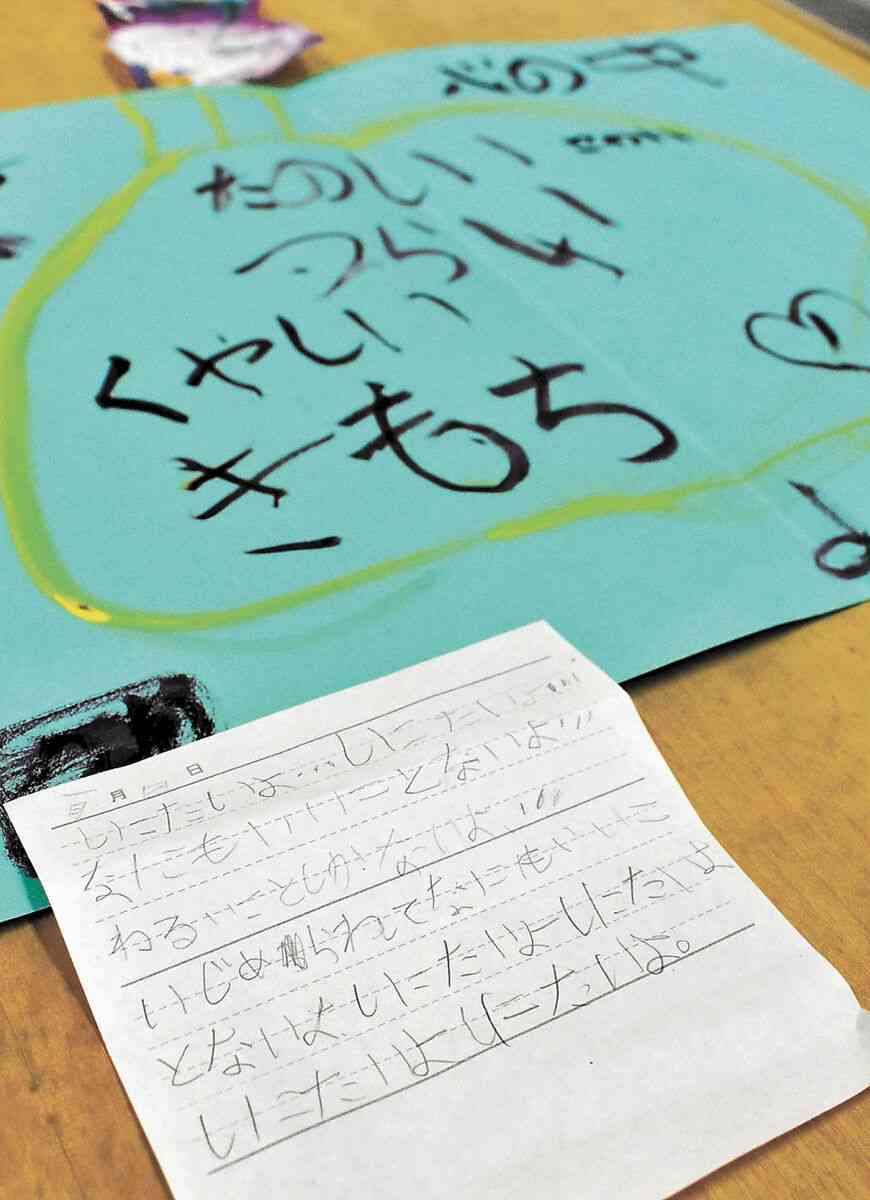 心の中
たのしい
つらい
くやしい
きもち
月 日
しにたいよ…しにたいよ…
なにもいいことないよ…
わるいことしかないよ…
いじめられてなにもいいこ
とないよしにたいよしにたいよ
しにたいよしにたいよ。